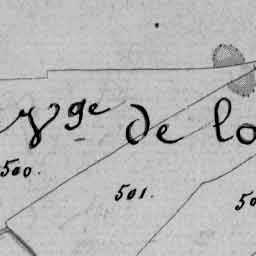 Vge de lo
500.
501.
50